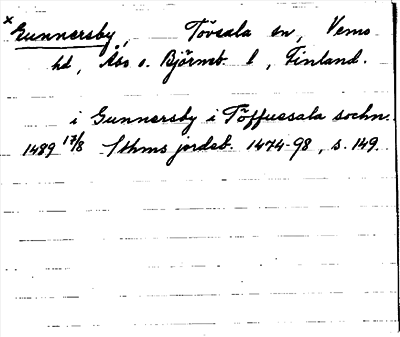 × Gunnersby, Tövsala sn, Vemo
hd, Åbo o. Björneb l, Finland.
i Gunnersby i Töffuesala sochn.
1489 17/8 Sthms jordeb. 1474-98, s. 149.